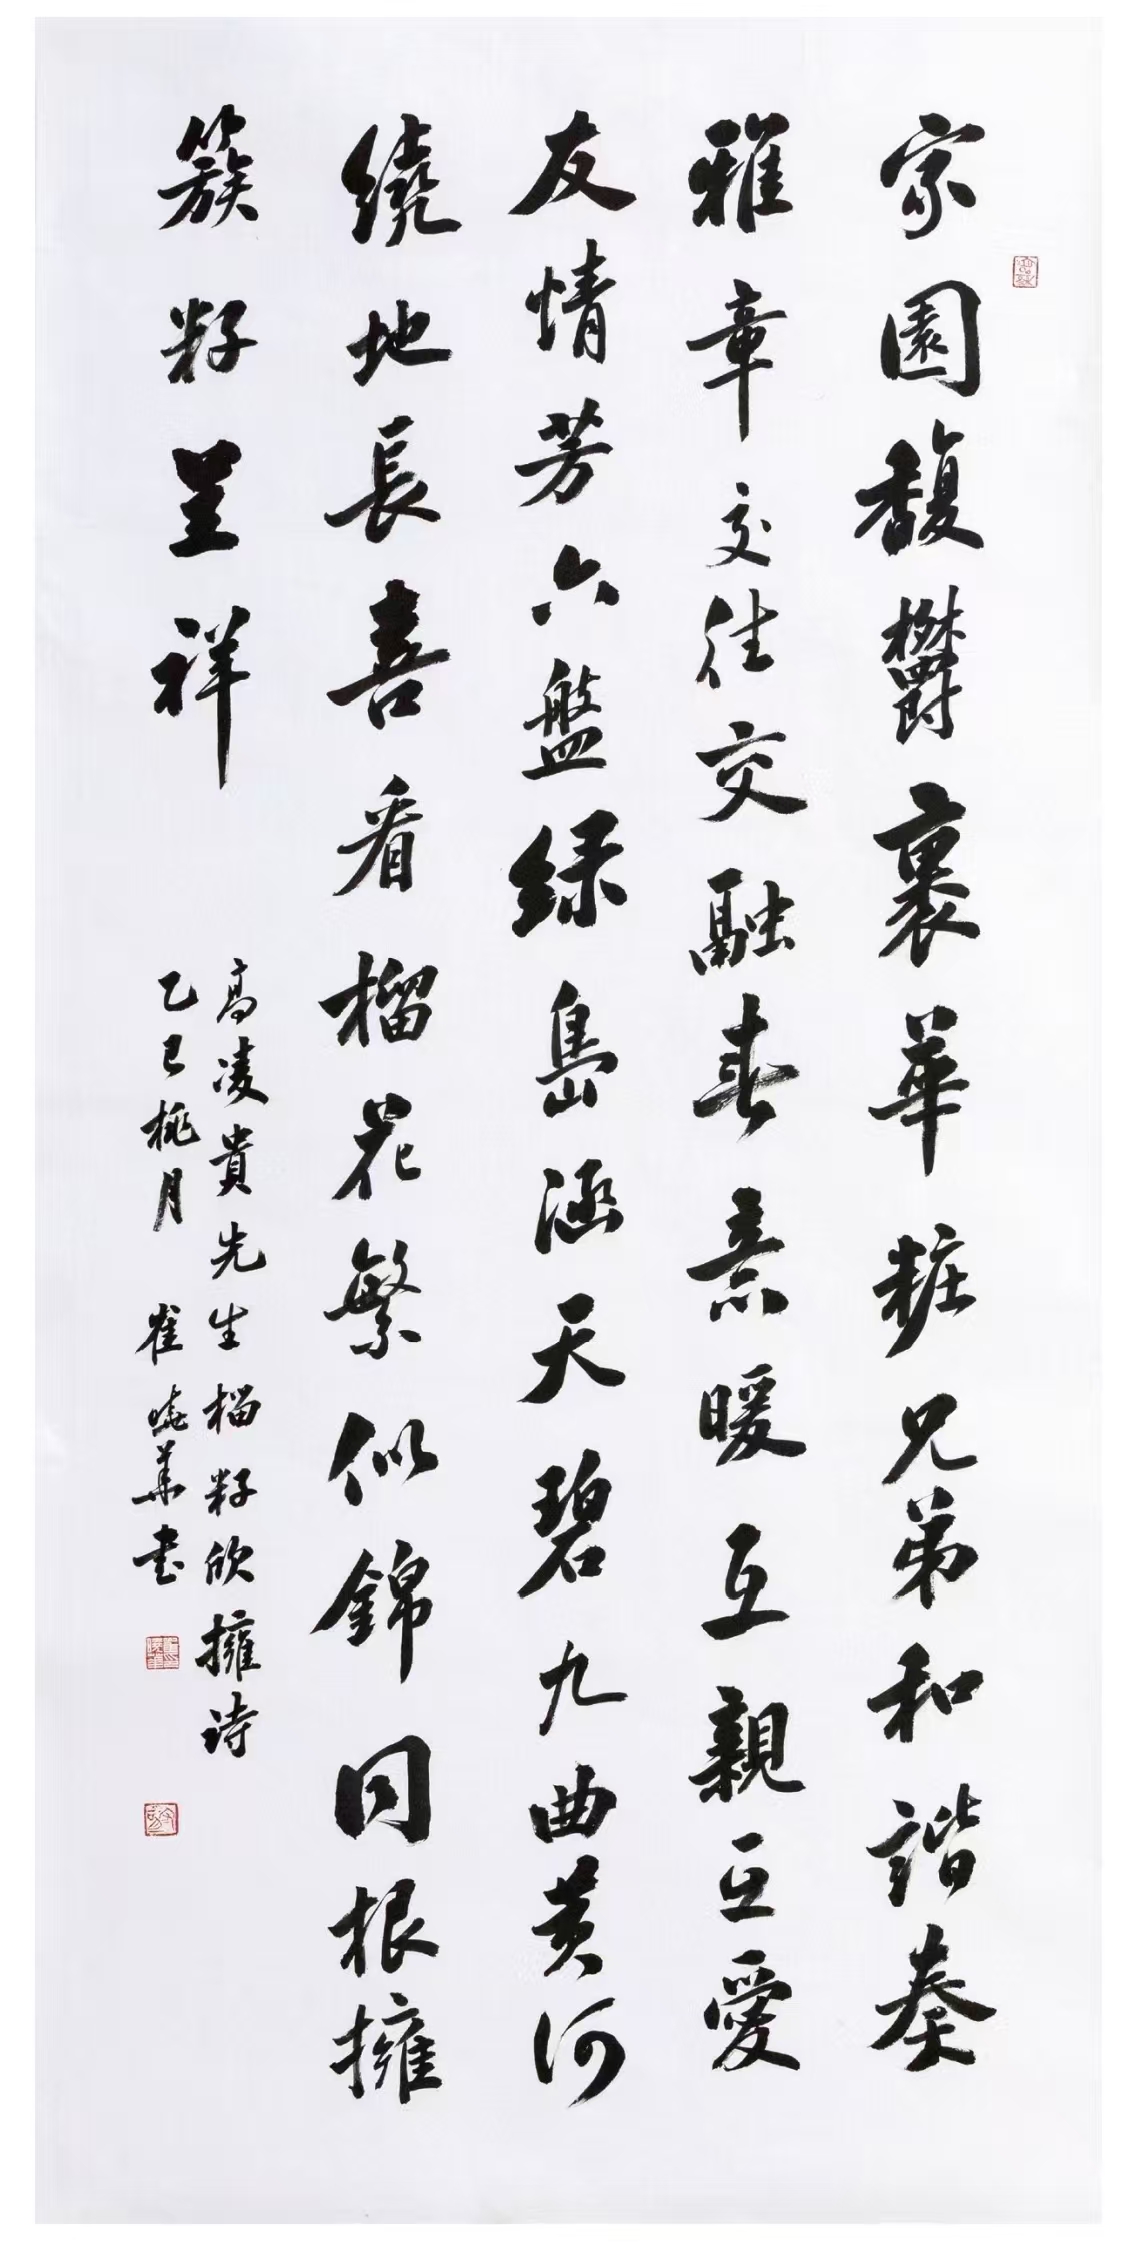 家園馥鬱裹華粧兄弟和諧奏
雅章交往交融春意暖互親互愛
友情芳六盤緑島涵天碧九曲黄河
繞地長喜看榴花繁似錦同根擁
簇籽呈祥
高凌貴先生榴籽欣擁诗
乙巳桃月 崔曉華书